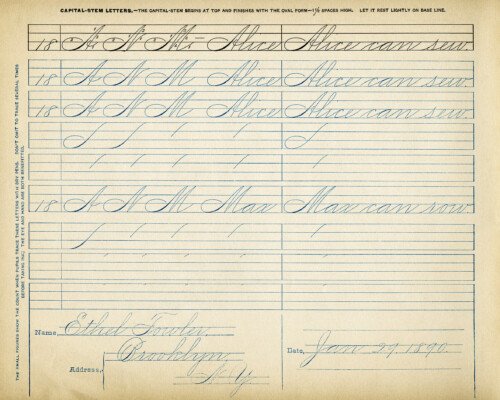 CAPITAL-STEM LETTERS.—THE CAPITAL-STEM BEGINS AT TOP AND FINISHES WITH THE OVAL FORM—1½ SPACES HIGH. LET IT REST LIGHTLY ON BASE LINE.
18 A N M Alice Alice can sew.
18 A N M Alice Alice can sew.
18 A N M Alice Alice can sew.
18 A N M Max Max can row.
Name, Ethel Fowler,
Address, Brooklyn,
N. Y.
Date, Jan 29, 1890.
THE SMALL FIGURES SHOW THE COUNT WHEN PUPILS TRACE THESE LETTERS WITH DRY PENS. DON'T OMIT TO TRACE SEVERAL TIMES
BEFORE TAKING INK; THE EYE AND HAND ARE BOTH BENEFITED.